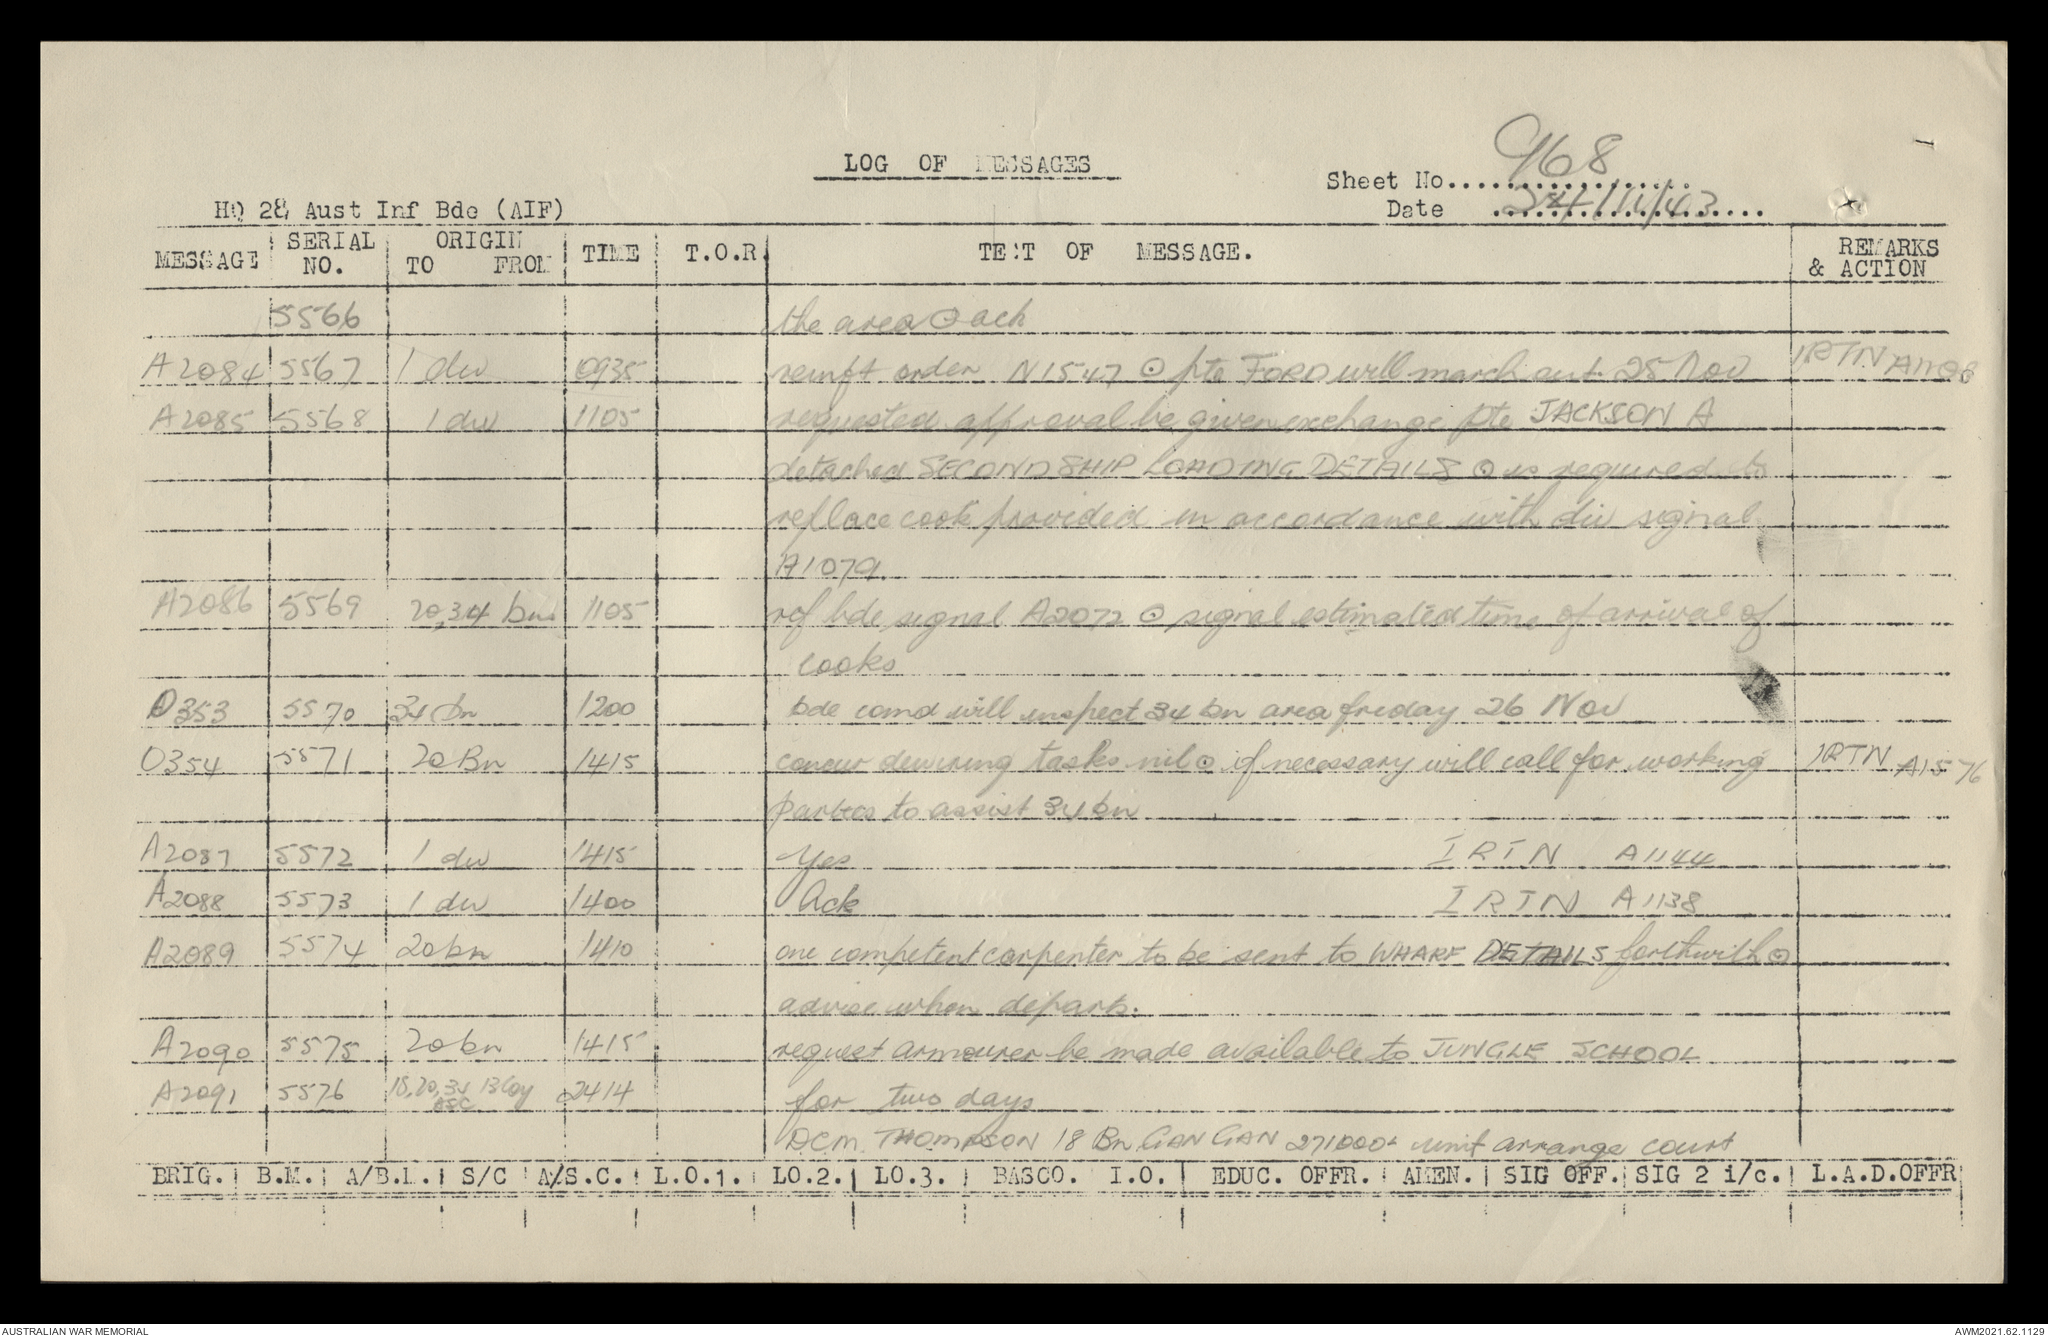 LOG OF MESSAGES
968
Sheet No..................
Date 24/11/43
HQ 28 Aust Inf Bde (AIF)
MESSAGE SERIAL NO. ORIGIN TO FROM TIME T.O.R. TEXT OF MESSAGE. REMARKS & ACTION
5566 the area ⊙ ack
A2084 5567 1 div 0935 reinft order N1547 ⊙ pte FORD will march out 25 Nov IRTN
A2085 5568 1 div 1105 requested approval be given exchange pte JACKSON A
detached SECOND SHIP LOADING DETAILS ⊙ is required to
replace cook provided in accordance with div signal
A1079.
A2086 5569 20,34 bns 1105 ref bde signal A2072 ⊙ signal estimated time of arrival of
cooks
O353 5570 34 bn 1200 bde comd will inspect 34 bn area friday 26 Nov
O354 5571 20 Bn 1415 concur dewiring tasks nil ⊙ if necessary will call for working IRTN A1576
parties to assist 34 bn
A2087 5572 1 div 1415 Yes IRTN A1144
A2088 5573 1 div 1400 Ack IRTN A1138
A2089 5574 20 bn 1410 one competent carpenter to be sent to WHARF DETAILS forthwith ⊙
advise when departs.
A2090 5575 20 bn 1415 request armourer be made available to JUNGLE SCHOOL
A2091 5576 18,20,34 13 Coy ASC 2414 for two days
DCM THOMPSON 18 Bn GAN GAN 271000L unit arrange court
BRIG. B.M. A/B.M. S/C A/S.C. L.O.1. LO.2. LO.3. BASCO. I.O. EDUC. OFFR. AMEN. SIG OFF. SIG 2 i/c. L.A.D.OFFR
AUSTRALIAN WAR MEMORIAL
AWM2021.62.1129